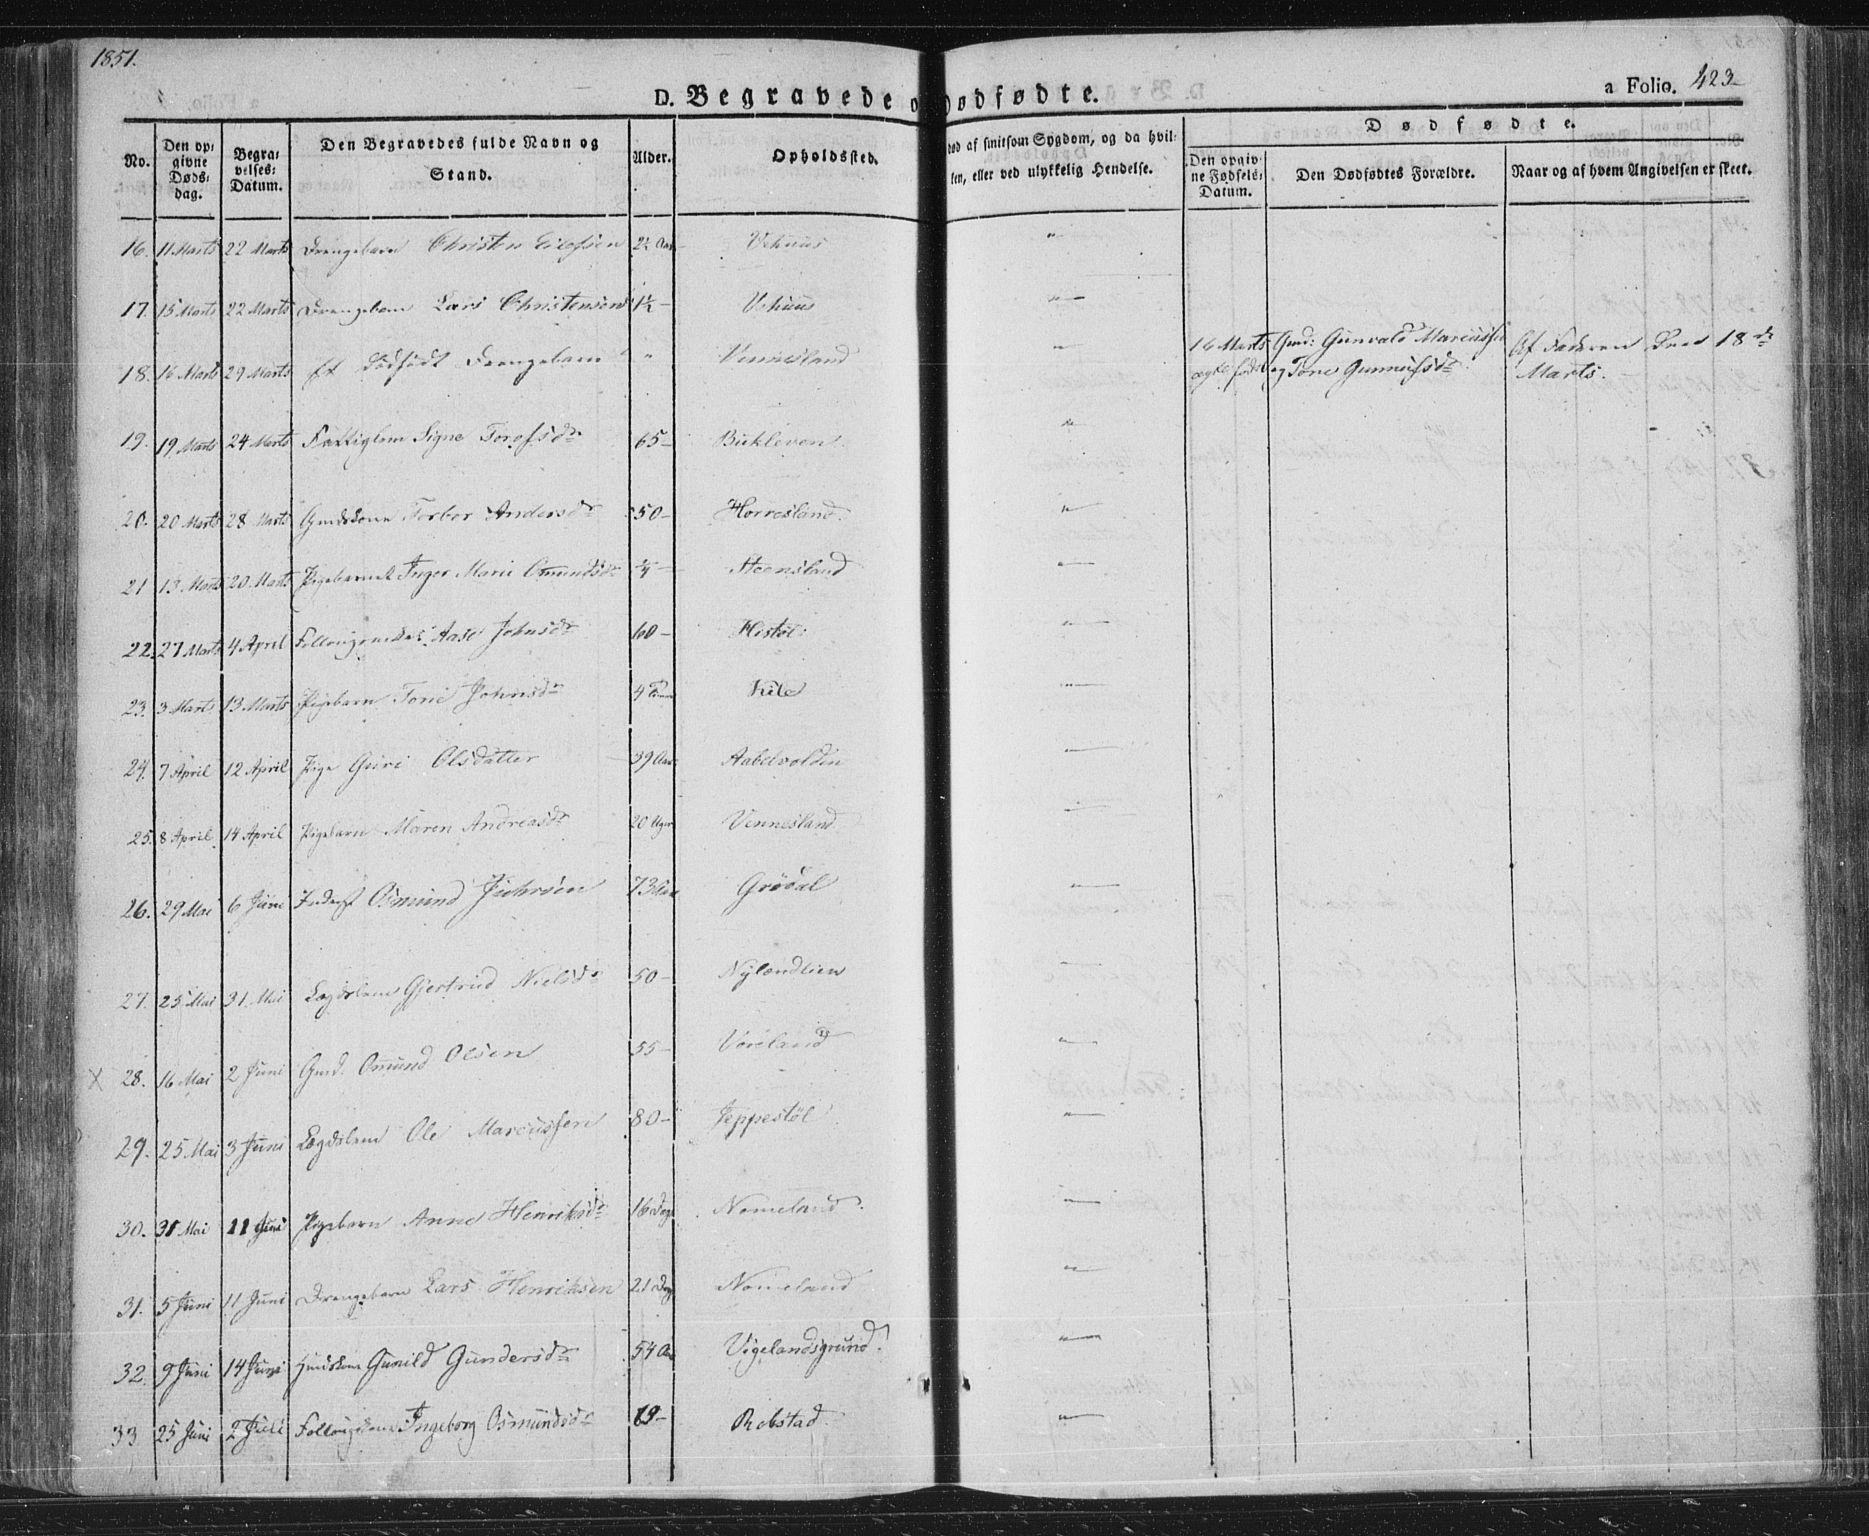 1851.
D. Begravede o Dødfødte.
a Folio. 423
No. | Den opgivne Dødsdag. | Begravelses-Datum. | Den Begravedes fulde Navn og Stand. | Alder. | Opholdssted. | død af smitsom Sygdom, og da hvilken, eller ved ulykkelig Hendelse. | Dødfødte. Den opgivne Fødsels-Datum. | Den Dødfødtes Forældre. | Naar og af hvem Angivelsen er skeet.
16. 11 Marts 22 Marts Drengebarn Christen 2½ Aar Vehuus "
17. 15 Marts 22 Marts Drengebarn Lars Christensen 1½ – Vehuus "
18. 16 Marts 29 Marts Et dødfødt Drengebarn " Vennesland " 16 Marts ægte født Gmd: Gunvald Marcussen og Tone Gunnufsdr Af Faderen Den 18de Marts.
19. 19 Marts 24 Marts Fattiglem Signe Torofsdr 65 – Bukleven "
20. 20 Marts 28 Marts Gmdskone Torbor Andersdr 50 – Horresland "
21 13 Marts 20 Marts Pigebarnet Inger Marie Omundsdr ¼ – Steensland "
22. 27 Marts 4 April Aase Johnsdr 60 – Histøl "
23. 3 Marts 13 Marts Pigebarn Tone Johnsdr 4 Kile "
24. 7 April 12 April Pige Guri Olsdatter 39 Aar Aabelvolden "
25. 8 April 14 April Pigebarn Maren Andreasdr 20 Uger Vennesland "
26. 29 Mai 6 Juni Inderst Osmund 73 Aar Grødal "
27. 25 Mai 31 Mai Lægdslem Gjertrud Nielsdr 50 – Nylændlien "
X 28. 16 Mai 2 Juni Gmd. Omund Olsen 55 – Voreland "
29. 25 Mai 3 Juni Lægdslem Ole Marcussen 80 – Jeppestøl "
30. 31 Mai 11 Juni Pigebarn Anne Henriksdr 16 Dage Nomeland "
31. 5 Juni 11 Juni Drengebarn Lars Henriksen 21 Dag Nomeland "
32. 9 Juni 14 Juni Gunild Gundersdr 54 Aar Vigelandsgrund. "
33 25 Juni 2 Juli Ingeborg Osmundsdr 69 – Robstad "